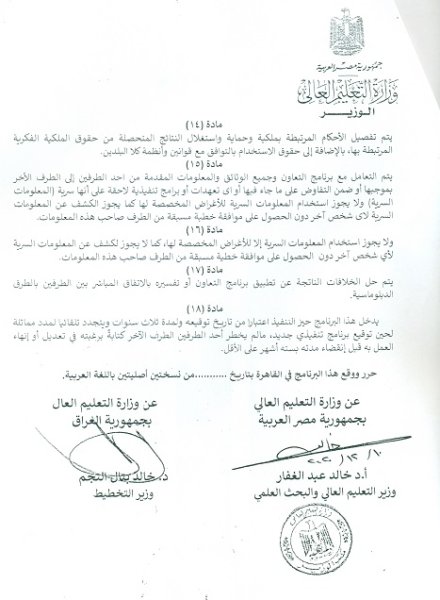 جمهورية مصر العربية
وزارة التعليم العالى
الوزير
مادة (١٤)
يتم تفصيل الأحكام المرتبطة بملكية وحماية واستغلال النتائج المتحصلة من حقوق الملكية الفكرية
المرتبطة بها، بالإضافة إلى حقوق الاستخدام بالتوافق مع قوانين وأنظمة كلا البلدين.
مادة (١٥)
يتم التعامل مع برنامج التعاون وجميع الوثائق والمعلومات المقدمة من احد الطرفين إلى الطرف الأخر
بموجبها أو ضمن التفاوض على ما جاء فيها أو اى تعهدات أو برامج تنفيذية لاحقة على أنها سرية (المعلومات
السرية) ولا يجوز استخدام المعلومات السرية إلا للأغراض المخصصة لها كما يجوز الكشف عن المعلومات
السرية لاى شخص آخر دون الحصول على موافقة خطية مسبقة من الطرف صاحب هذه المعلومات.
مادة (١٦)
ولا يجوز استخدام المعلومات السرية إلا للأغراض المخصصة لها، كما لا يجوز لكشف عن المعلومات السرية
لأي شخص آخر دون الحصول على موافقة خطية مسبقة من الطرف صاحب هذه المعلومات.
مادة (١٧)
يتم حل الخلافات الناتجة عن تطبيق برنامج التعاون أو تفسيره بالاتفاق المباشر بين الطرفين بالطرق
الدبلوماسية.
مادة (١٨)
يدخل هذا البرنامج حيز التنفيذ اعتبارا من تاريخ توقيعه ولمدة ثلاث سنوات ويتجدد تلقائيا لمدد مماثلة
لحين توقيع برنامج تنفيذي جديد، مالم يخطر أحد الطرفين الطرف الآخر كتابة برغبته في تعديل أو إنهاء
العمل به قبل إنقضاء مدته بسته أشهر على الأقل.
حرر ووقع هذا البرنامج في القاهرة بتاريخ ...........من نسختين أصليتين باللغة العربية.
عن وزارة التعليم العالي
بجمهورية مصر العربية
٢٠٢٠/١٢/١٠
أ.د خالد عبد الغفار
وزير التعليم العالي والبحث العلمي
عن وزارة التعليم العال
بجمهورية العراق
د. خالد بتال النجم
وزير التخطيط